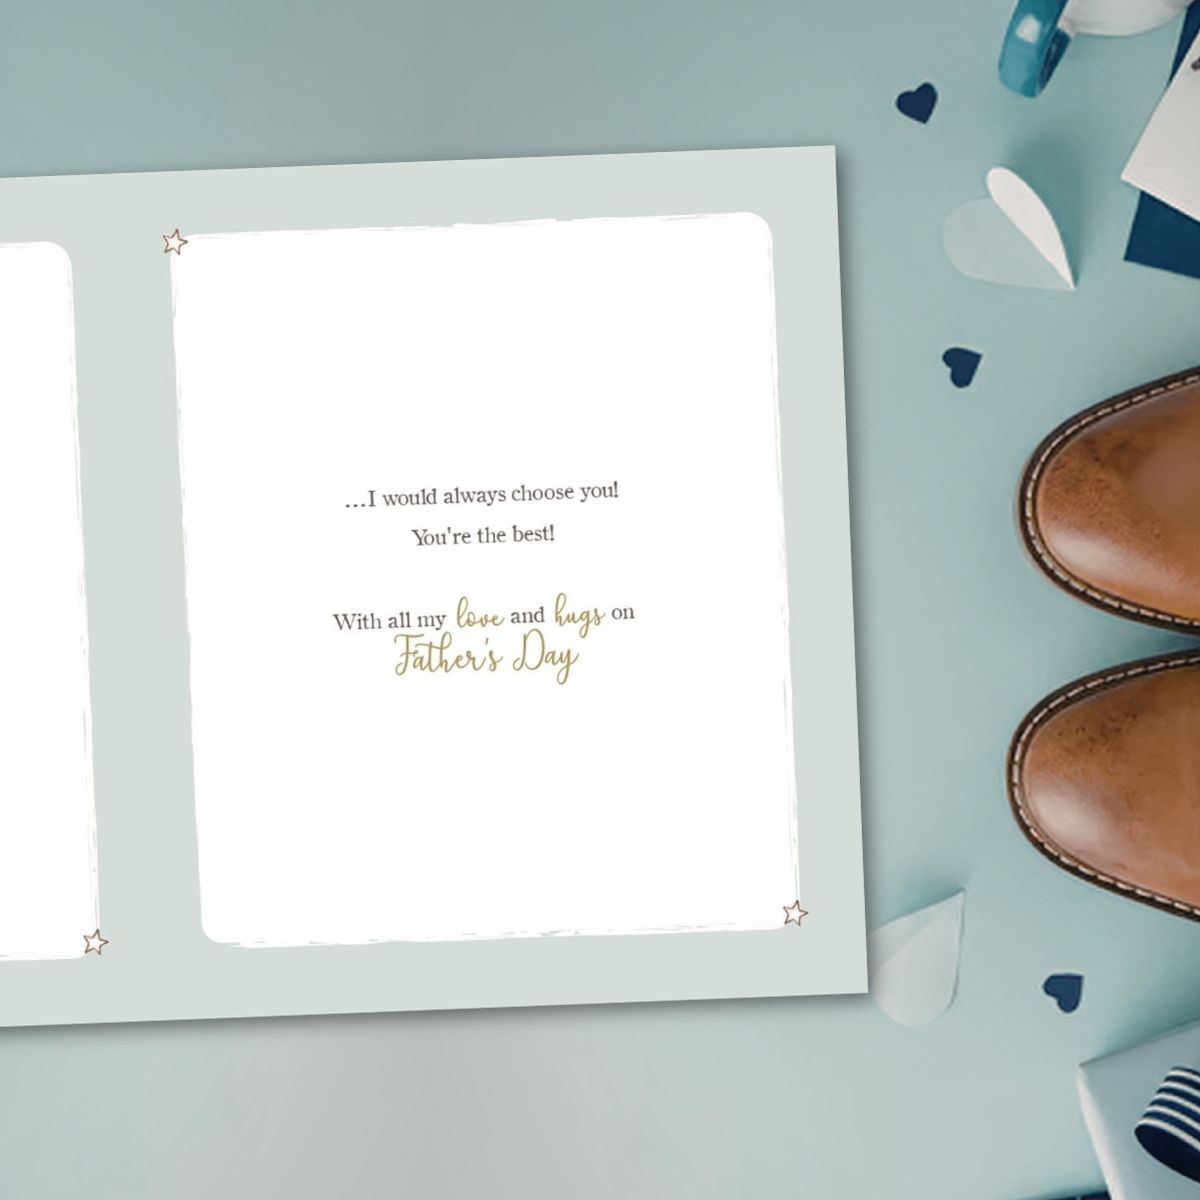 ...I would always choose you!
You're the best!
With all my love and hugs on
Father's Day